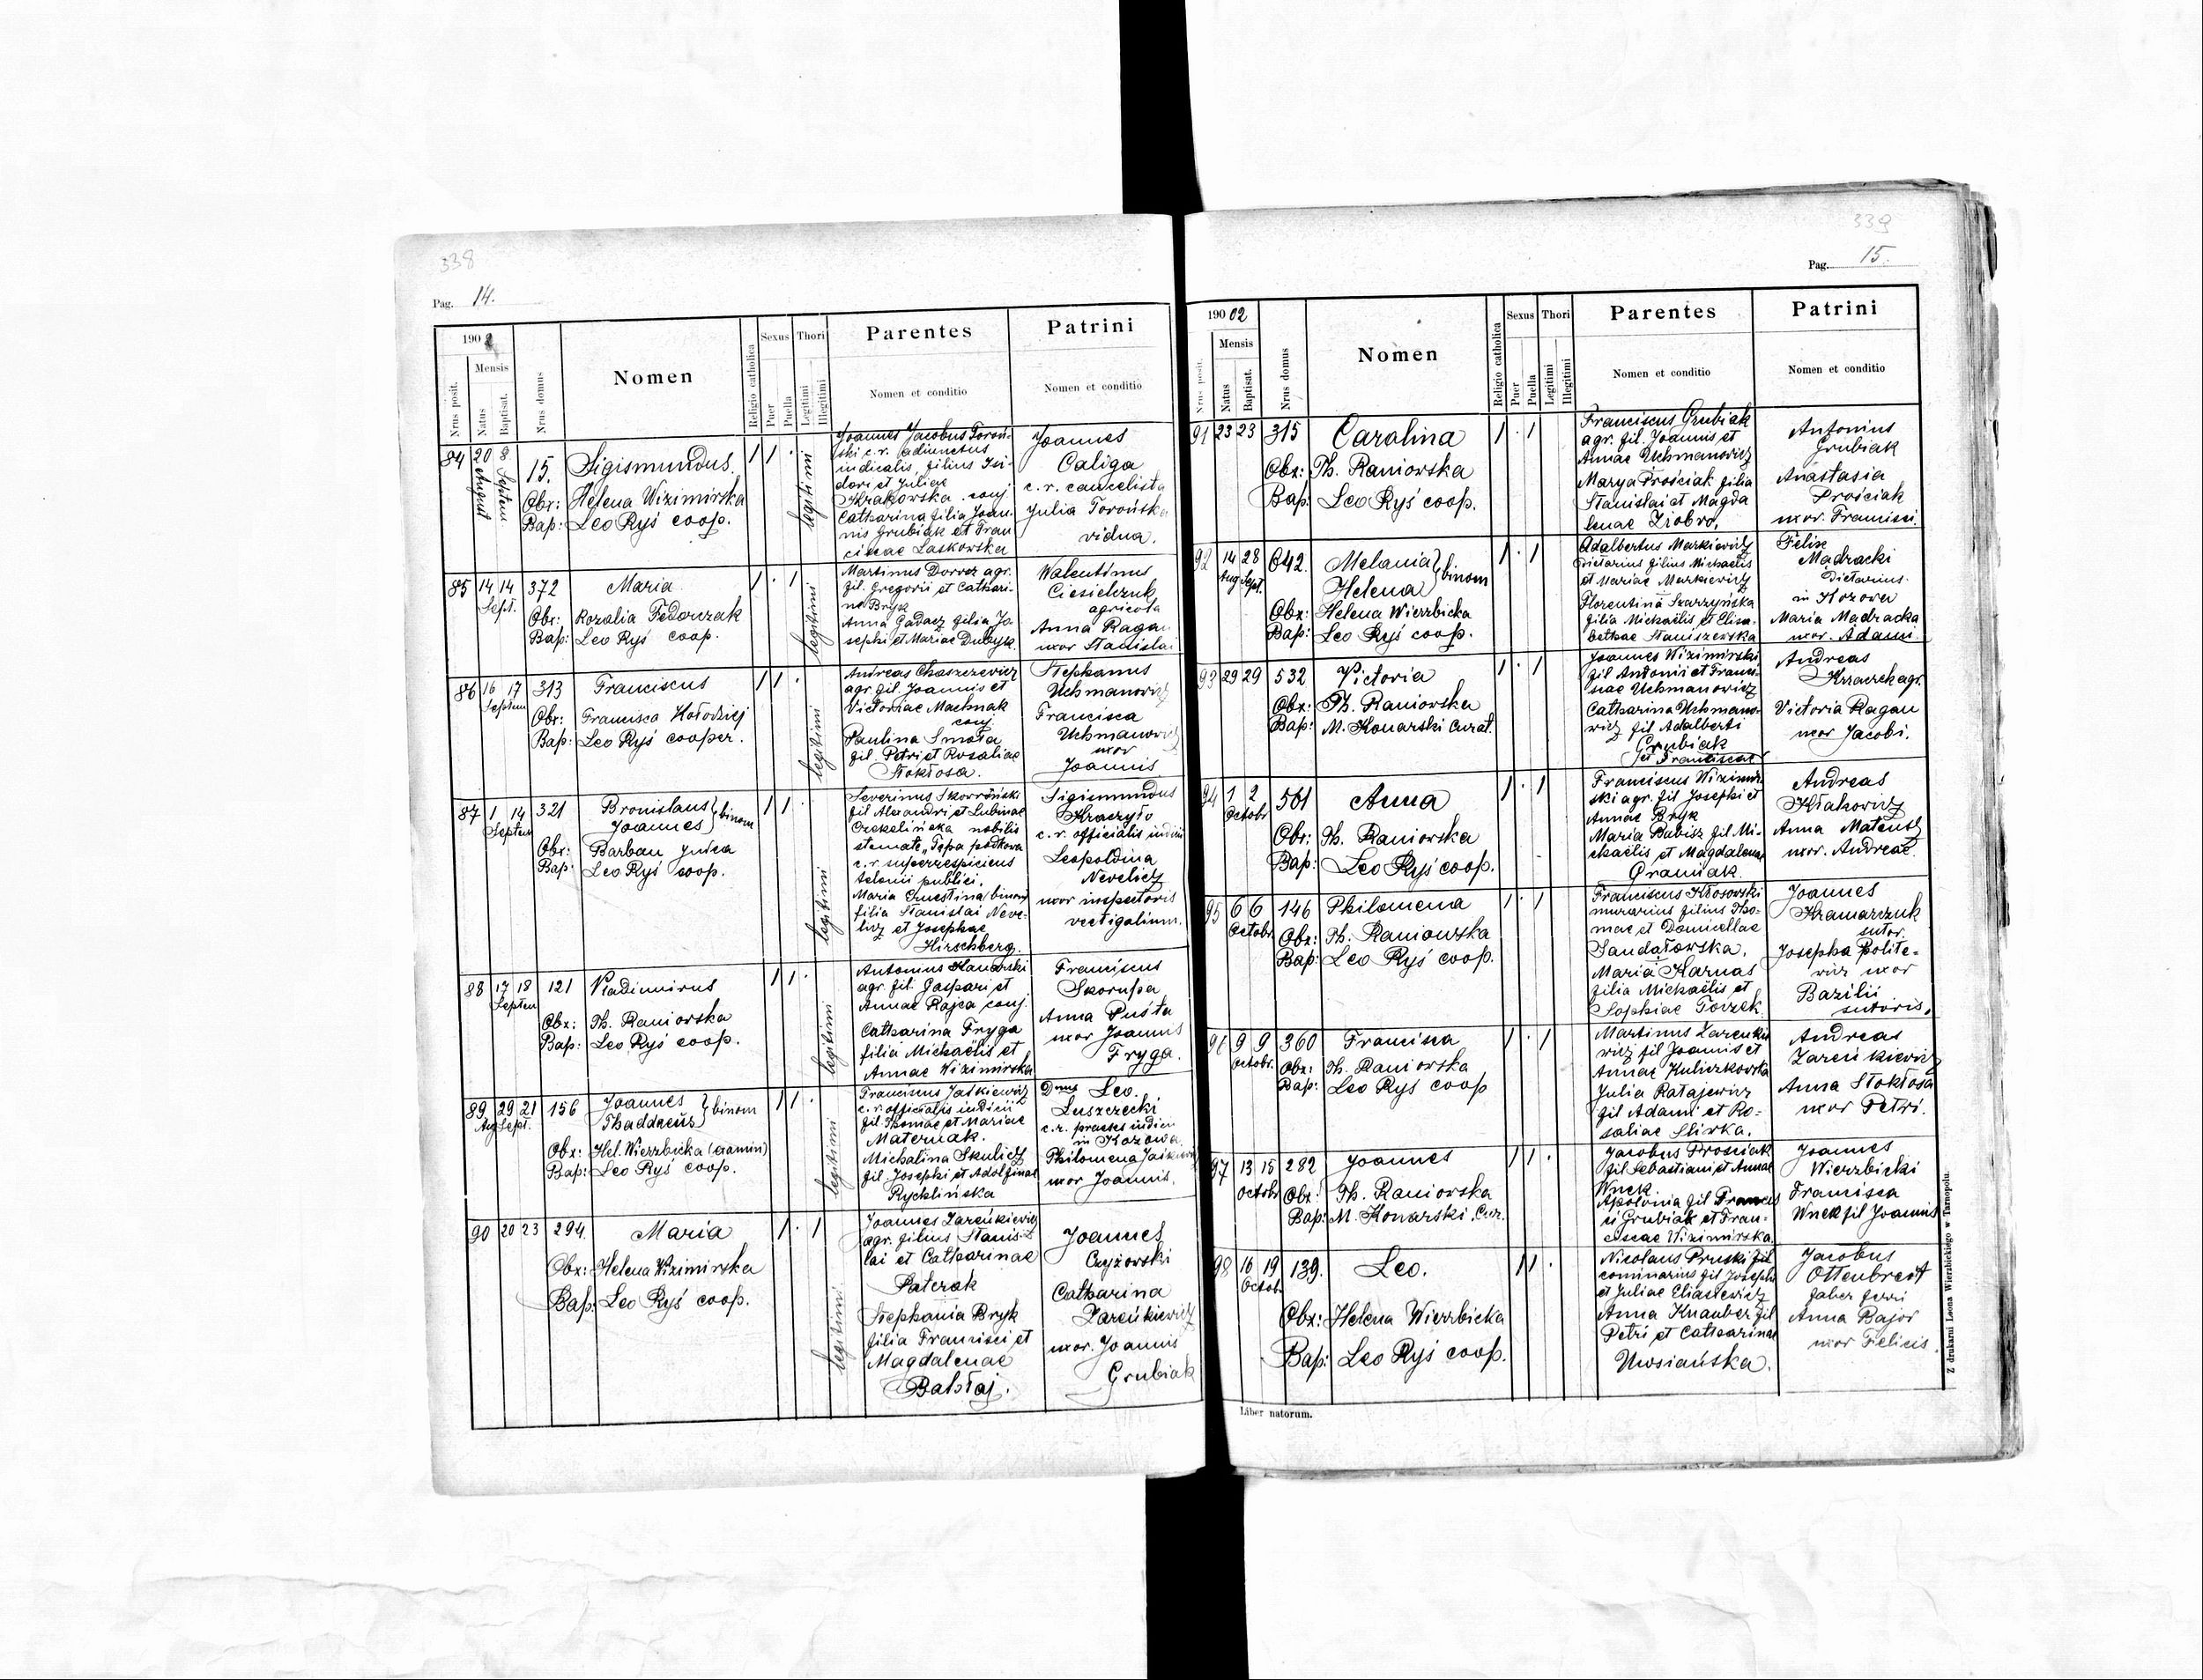 338
Pag. 14.
1902
Nrus posit.
Mensis
Natus
Baptisat.
Nrus domus
Nomen
Religio catholica
Sexus
Puer
Puella
Thori
Legitimi
Illegitimi
Parentes
Nomen et conditio
Patrini
Nomen et conditio
84 20 August 8 Septem 15. Sigismundus.
Obx: Helena Wizimirska
Bap: Leo Ryś coop.
legitimi
Joannes Jacobus Toroń-
ski c.r. adiunctus
iudicalis, filius Isi-
dori et Juliae
Krakowska conj.
Catharina filia Joan-
nis Grubiak et Fran
ciscae Laskowska
Joannes
Caliga
c. r. cancelista
Julia Torońska
vidua.
85 14 14 Sept. 372 Maria
Obx: Rozalia Fedorczak
Bap: Leo Ryś coop.
legitimi
Martinus Dorosz agr.
fil. Gregorii et Cathari-
na Bryk
Anna Gadacz filia Jo
sephi et Mariae
Walentinus
Ciesielczuk
agricola
Anna Ragan
uxor Stanislai
86 16 17 Septem 313 Franciscus
Obx: Francisca Hołodziej
Bap: Leo Ryś cooper.
legitimi
Andreas Chaszczewicz
agr. fil. Joannis et
Victoriae Machnak
conj.
Paulina Smoła
fil. Petri et Rosaliae
Stokłosa.
Stephanus
Uchmanowicz
Francisca
Uchmanowicz
uxor
Joannis
87 1 14 Septem 321 Bronislaus } binom
Joannes
Obx: Barbau Julia
Bap: Leo Ryś coop.
legitimi
Severinus Skowroński
fil Alexandri et Lubinae
nobilis
stemate „Tępa podkowa
c.r. superrespiciens
telonii publici,
Maria Ernestina (binom)
filia Stanislai Neve-
licz et Josephae
Hirschberg.
Sigismundus
Kraczyło
c. r. officialis iudicii
Leopoldina
Nevelicz
uxor inspectoris
vectigalium.
88 17 18 Septem 121 Vladimirus
Obx: Th. Raniowska
Bap: Leo Ryś coop.
legitimi
Antonius Konarski
agr. fil. Gaspari et
Annae Rajca conj.
Catharina Fryga
filia Michaëlis et
Annae Wizimirska
Franciscus
Skorupa
Anna Pusta
uxor Joannis
Fryga.
89 29 Aug 21 Sept. 156 Joannes } binom
Thaddaeus
Obx: Hel. Wierzbicka (examin)
Bap: Leo Ryś coop.
legitimi
Franciscus Jaśkiewicz
c.r. officialis iudicii
fil Thomae et Mariae
Maternak.
Michalina Skulicz
fil. Josephi et Adolfinae
Rychlińska
Dnus Leo
Luszczecki
c.r. praeses iudicii
in Kozowa
Philomena Jaśkiewicz
uxor Joannis.
90 20 23 294. Maria
Obx: Helena Wizimirska
Bap: Leo Ryś coop.
legitimi
Joannes Zareńkiewicz
agr. filius Stanis-
lai et Catharinae
Paterak
Stephania Bryk
filia Francisci et
Magdalenae
Bałłaj.
Joannes
Czyżowski
Catharina
Zareńkiewicz
uxor. Joannis
Grubiak
339
Pag. 15.
1902
Nrus posit.
Mensis
Natus
Baptisat.
Nrus domus
Nomen
Religio catholica
Sexus
Puer
Puella
Thori
Legitimi
Illegitimi
Parentes
Nomen et conditio
Patrini
Nomen et conditio
91 23 23 315 Carolina
Obx: Th. Raniowska
Bap: Leo Ryś coop.
Franciscus Grubiak
agr. fil. Joannis et
Annae Uchmanowicz
Marya Prościak filia
Stanislai et Magda
lenae Ziobro,
Antonius
Grubiak
Anastasia
Prościak
uxor. Francisci.
92 14 Aug 28 Sept. 642. Melania } binom
Helena
Obx: Helena Wierzbicka
Bap: Leo Ryś coop.
Adalbertus Markiewicz
Dietarius filius Michaëlis
et Mariae Markiewicz
Florentina Szarzyńska
filia Michaëlis et Elisa-
bethae Staniszewska
Felix
Madracki
Dietarius.
in Kozowa
Maria Madracka
uxor. Adami.
93 29 29 532 Victoria
Obx: Th. Raniowska
Bap: M. Konarski Curat.
Joannes Wizimirski
fil Antonii et Franci-
scae Uchmanowicz
Catharina Uchmano-
wicz fil Adalberti
Grubiak
et Franciscae
Andreas
Krzaczek agr.
Victoria Ragan
uxor Jacobi.
94 1 2 Octobr 561 Anna
Obx: Th. Raniowska
Bap: Leo Ryś coop.
Franciscus Wizimir-
ski agr. fil Josephi et
Annae Bryk
Maria Babisz fil. Mi-
chaëlis et Magdalenae
Graniak.
Andreas
Anna Mateusz
uxor. Andreae.
95 6 6 Octobr 146 Philomena
Obx: Th. Raniowska
Bap: Leo Ryś coop.
Franciscus Kłosowski
murarius filius Tho-
mae et Domicellae
Sandałowska.
Maria Karnas
filia Michaëlis et
Sophiae Tovzek
Joannes
Kramarczuk
sutor.
Josepha Polite-
wicz uxor
Bazilii
sutoris.
96 9 9 Octobr. 360 Francisca
Obx: Th. Raniowska
Bap: Leo Ryś coop
Martinus Zareńkie
wicz fil Joannis et
Annae Kuliczkowska
Julia Ratajewicz
fil Adami et Ro-
saliae Sliwka.
Andreas
Zareńkiewicz
Anna Stokłosa
uxor Petri.
97 13 15 Octobr 282 Joannes
Obx: Th. Raniowska
Bap: M. Konarski Cur.
Jacobus Prościak
fil Sebastiani et Annae
Wnek
Apolonia fil Francis
ci Grubiak et Fran-
ciscae Wizimirska
Joannes
Wierzbicki
Francisca
Wnek fil Joannis
98 16 19 Octobr 139. Leo.
Obx: Helena Wierzbicka
Bap: Leo Ryś coop.
Nicolaus Pruski fil
cominarius fil Josephi
et Juliae Eliasiewicz
Anna Knauber fil
Petri et Catharinae
Uwsiańska.
Jacobus
Ottenbreit
faber ferri
Anna Bajor
uxor Felicis.
Liber natorum.
Z drukarni Leona Wierzbickiego w Tarnopolu.